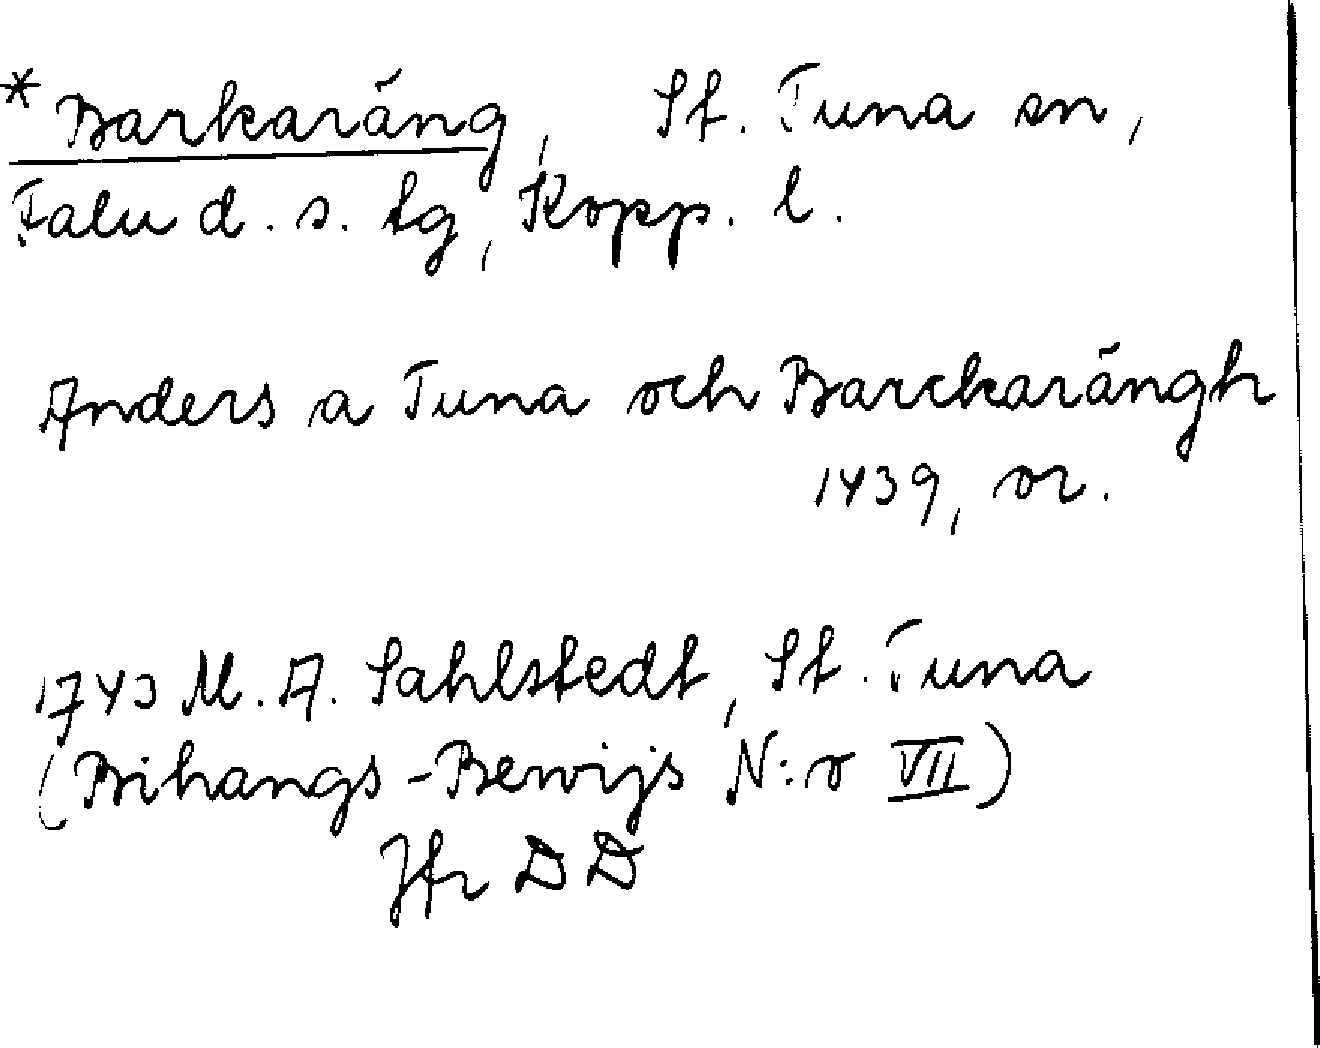 *Barkaräng, St. Tuna sn,
Falu d. s. tg, Kopp. l.
Anders a Tuna och Barckarängh
1439, or.
1743 M. A. Sahlstedt, St. Tuna
(Bihangs-Bewijs N:o VII)
Jfr DD